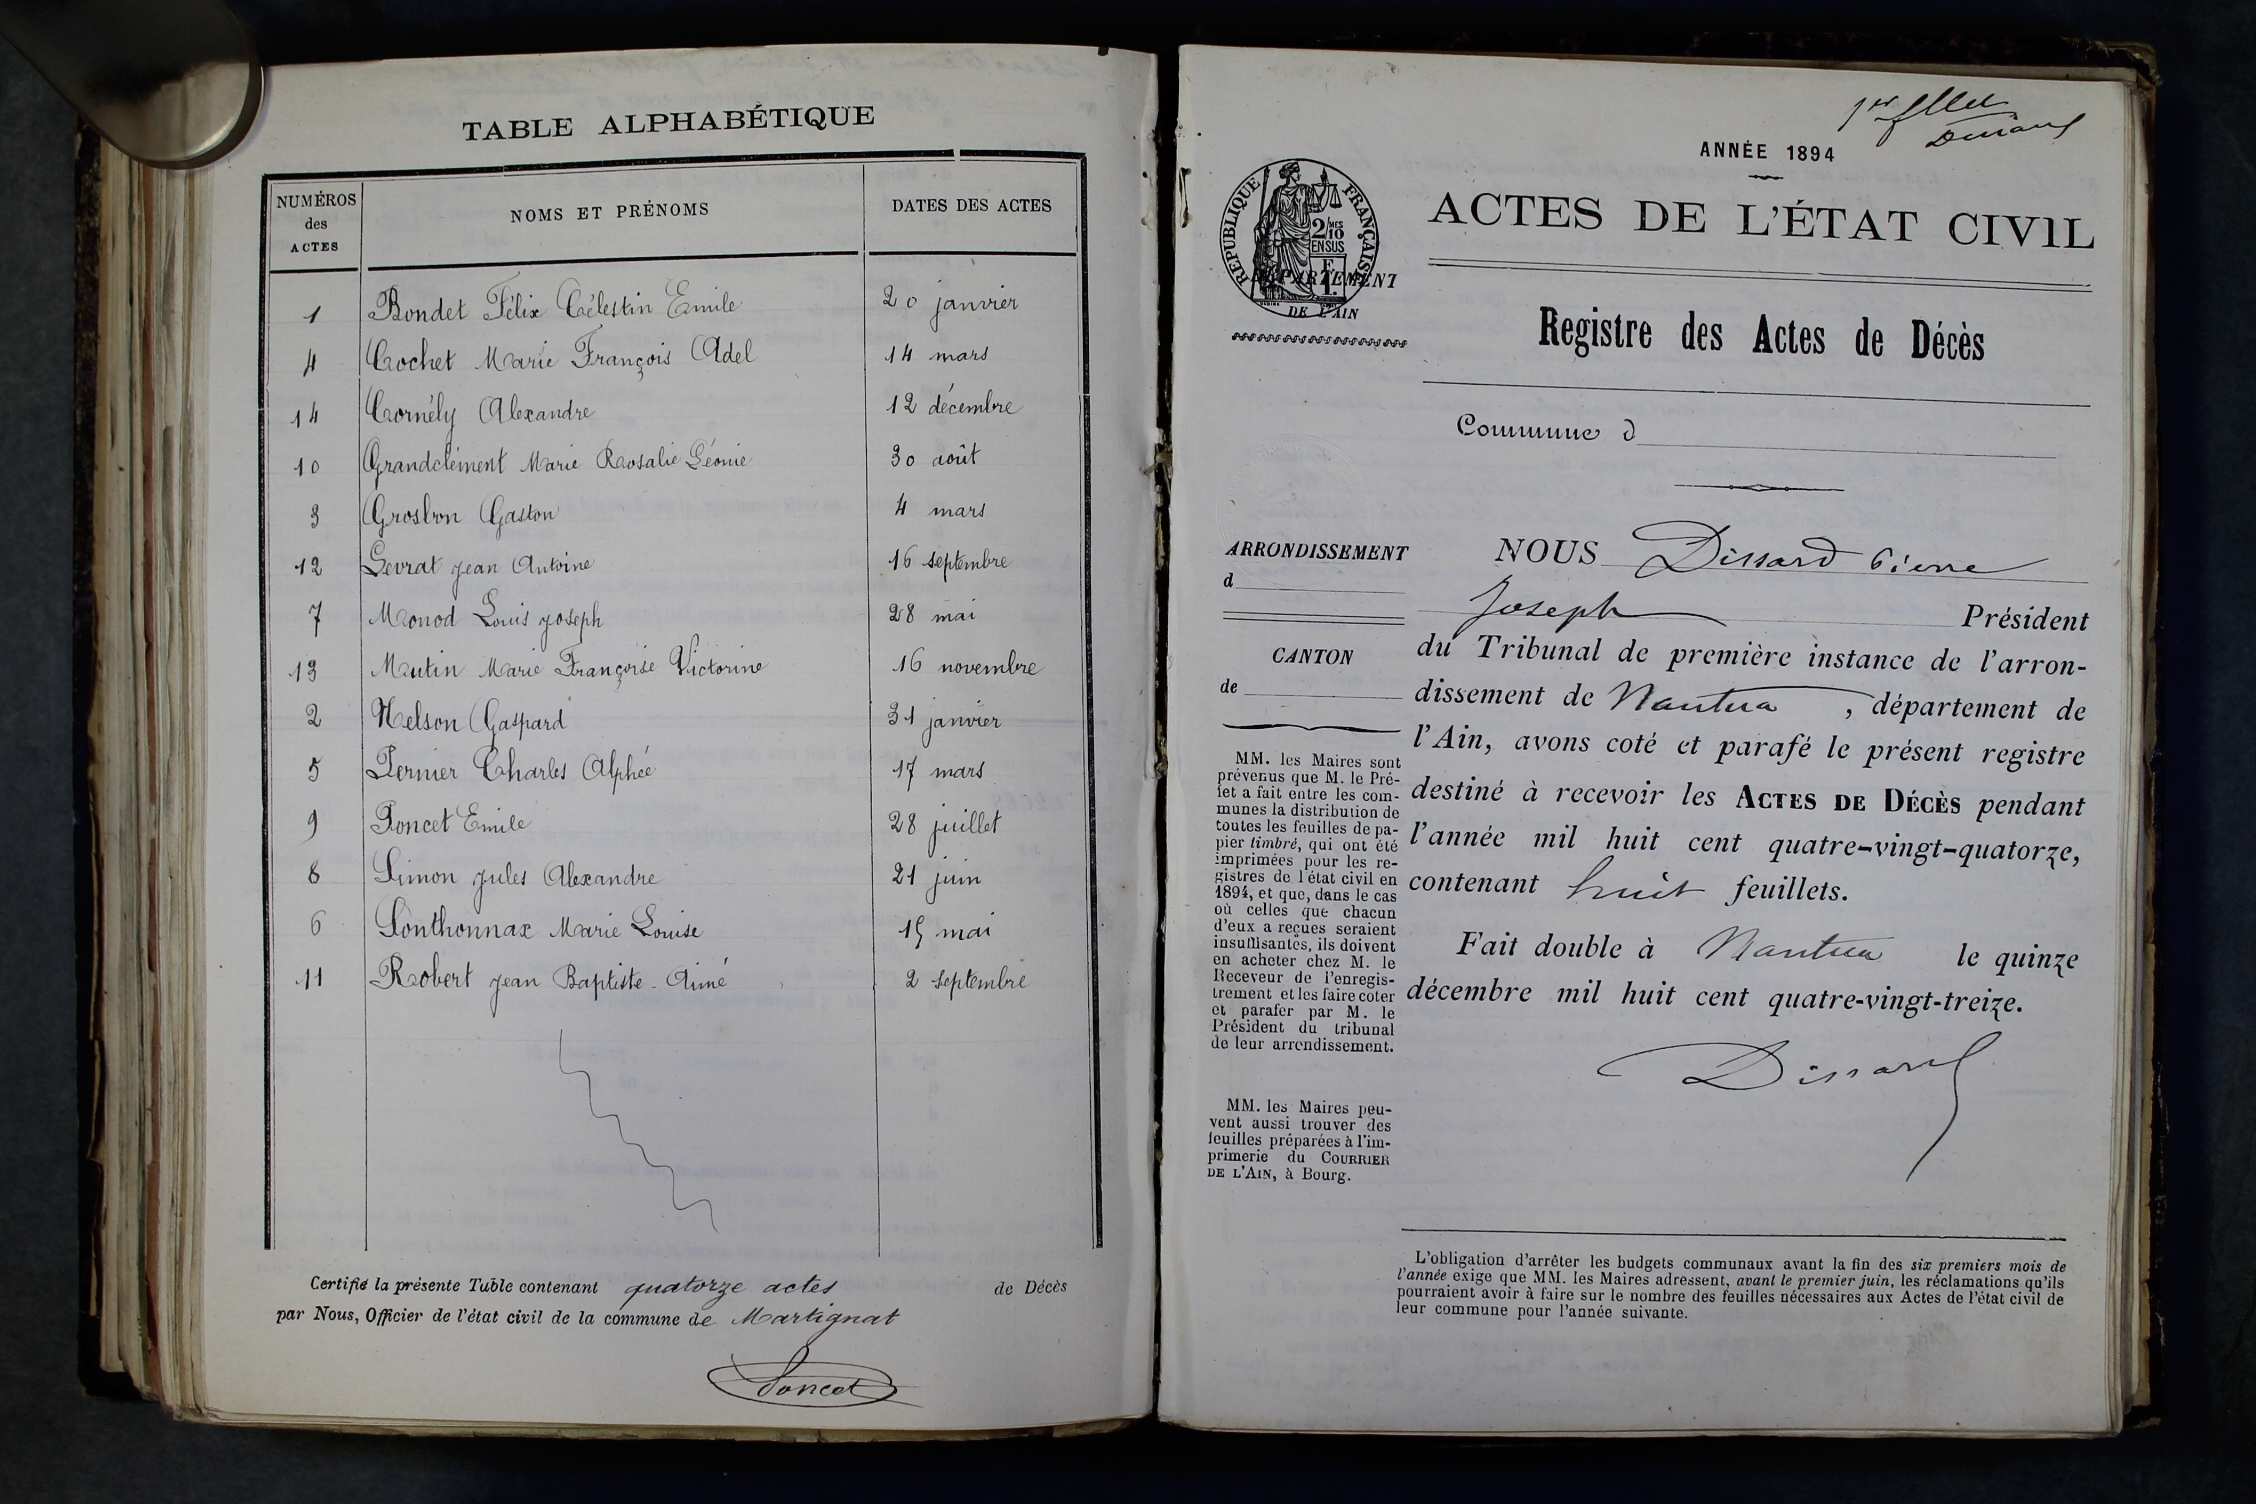 TABLE ALPHABÉTIQUE
NUMÉROS des ACTES NOMS ET PRÉNOMS DATES DES ACTES
1 Bondet Félix Célestin Emile 20 janvier
4 Cochet Marie François Adel 14 mars
14 Cornély Alexandre 12 décembre
10 Grandclément Marie Rosalie Léonie 30 août
3 Grosbon Gaston 4 mars
12 Levrat Jean Antoine 16 septembre
7 Monod Louis Joseph 28 mai
13 Mutin Marie Françoise Victorine 16 novembre
2 Nelson Gaspard 31 janvier
5 Pernier Charles Alphée 17 mars
9 Poncet Emile 28 juillet
8 Simon Jules Alexandre 21 juin
6 Sonthonnax Marie Louise 15 mai
11 Robert Jean Baptiste-Aimé 2 septembre
Certifié la présente Table contenant quatorze actes de Décès
par Nous, Officier de l'état civil de la commune de Martignat
Poncet
1er fllet
Dissard
ANNÉE 1894
RÉPUBLIQUE FRANÇAISE
2/10MES
EN SUS
ACTES DE L'ÉTAT CIVIL
DÉPARTEMENT
DE L'AIN
Registre des Actes de Décès
Commune d
ARRONDISSEMENT
d
CANTON
de
MM. les Maires sont
prévenus que M. le Pré-
fet a fait entre les com-
munes la distribution de
toutes les feuilles de pa-
pier timbré, qui ont été
imprimées pour les re-
gistres de l'état civil en
1894, et que, dans le cas
où celles que chacun
d'eux a reçues seraient
insuffisantes, ils doivent
en acheter chez M. le
Receveur de l'enregis-
trement et les faire coter
et parafer par M. le
Président du tribunal
de leur arrondissement.
MM. les Maires peu-
vent aussi trouver des
feuilles préparées à l'im-
primerie du COURRIER
DE L'AIN, à Bourg.
NOUS Dissard Pierre
Joseph Président
du Tribunal de première instance de l'arron-
dissement de Nantua, département de
l'Ain, avons coté et parafé le présent registre
destiné à recevoir les ACTES DE DÉCÈS pendant
l'année mil huit cent quatre-vingt-quatorze,
contenant huit feuillets.
Fait double à Nantua le quinze
décembre mil huit cent quatre-vingt-treize.
Dissard
L'obligation d'arrêter les budgets communaux avant la fin des six premiers mois de
l'année exige que MM. les Maires adressent, avant le premier juin, les réclamations qu'ils
pourraient avoir à faire sur le nombre des feuilles nécessaires aux Actes de l'état civil de
leur commune pour l'année suivante.